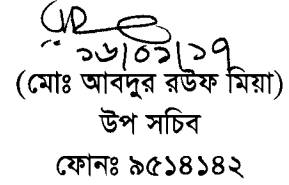 ১৬/০১/১৭
(মোঃ আবদুর রউফ মিয়া)
উপ সচিব
ফোনঃ ৯৫১৪১৪২